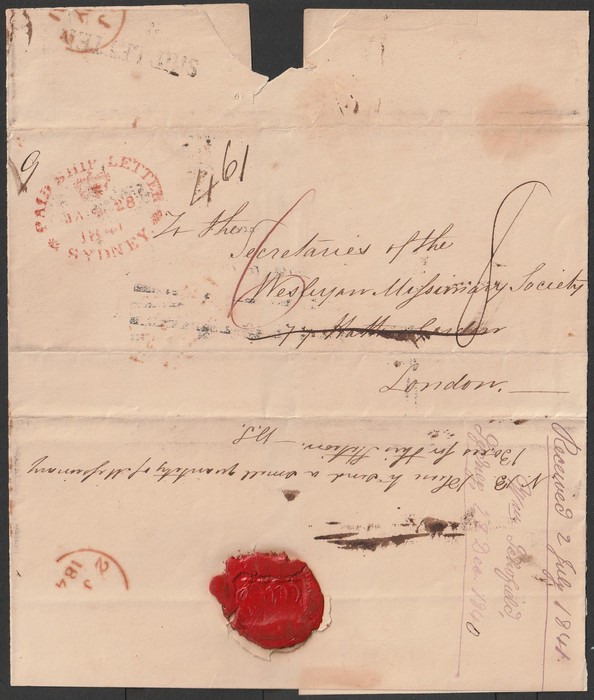 SHIP LETTER
PAID SHIP LETTER
JA 28
1841
SYDNEY
6
4
61
To the
Secretaries of the
Wesleyan Missionary Society
77 Hatton Garden
London.
N.B. Please to send a small quantity of Missionary
Boxes for this Station.
Received 2 July 1841.
Wm Schofield,
Sydney, 28 Dec 1840
2
184